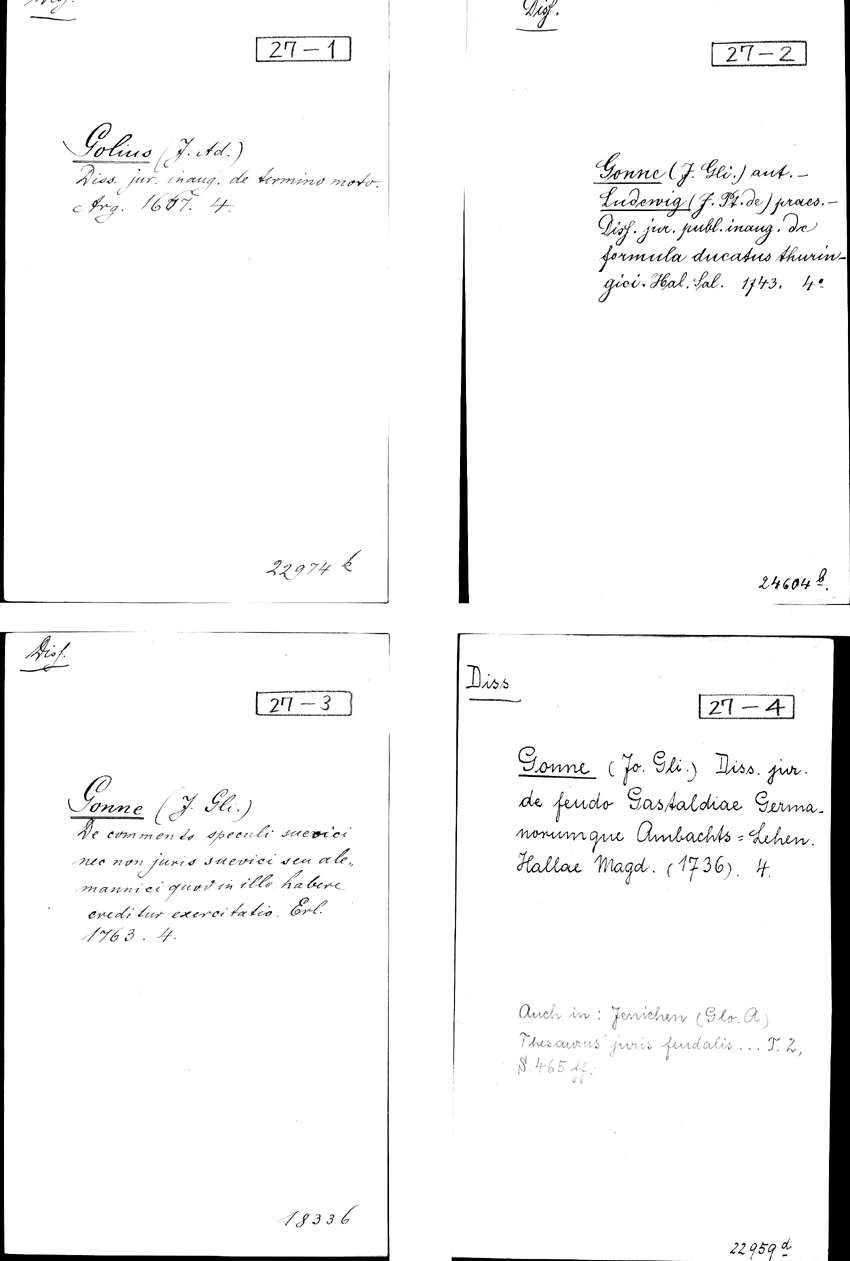 Diss.
27-1
Golius (J. Ad.)
Diss. jur. inaug. de termino moto.
Arg. 4.
22974 k
Diss.
27-2
Gonne (J. Gli.) aut. –
Ludewig (J. Pt. de) praes. –
Diss. jur. publ. inaug. de
formula ducatus thurin-
gici. Hal. Sal. 1743. 4°
24604 k.
Diss.
27-3
Gonne (J. Gli.)
De commento speculi suevici
nec non juris suevici seu ale-
mannici quod in illo habere
creditur exercitatio. Erl.
1763. 4.
18336
Diss
27-4
Gonne (Jo. Gli.) Diss. jur.
de feudo Gastaldiae Germa-
norumque Ambachts=Lehen.
Hallae Magd. (1736). 4.
Auch in: Jenichen (Glo. A)
Thesaurus juris feudalis... T. 2,
S. 465 ff.
22959 d